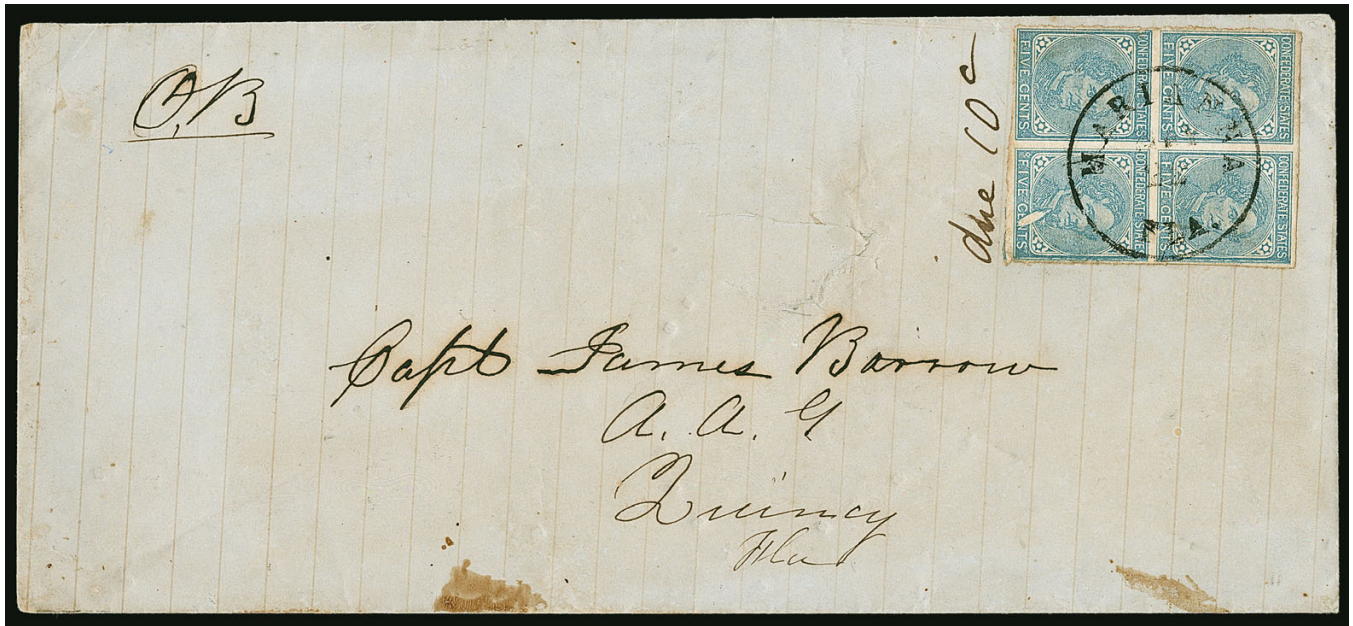 O,B
due 10 c
CONFEDERATE STATES
FIVE CENTS
CONFEDERATE STATES
FIVE CENTS
CONFEDERATE STATES
FIVE CENTS
CONFEDERATE STATES
FIVE CENTS
MARIANNA
Capt James Barrow
A. A. G
Quincy
Fla